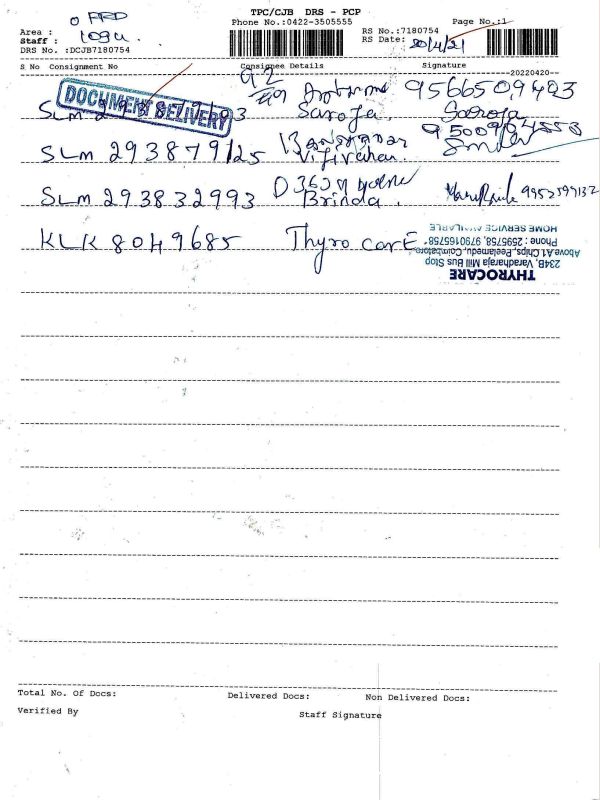 TPC/CJB DRS - PCP
Phone No.:0422-3505555
Page No.:1
Area :
Staff : logu.
DRS No. :DCJB7180754
RS No.:7180754
RS Date: 20/4/21
S No Consignment No Consignee Details Signature
--20220420--
DOCUMENT DELIVERY
9566509493
Saroja. Saroja
SLM 293879125
SLM 293832993 Brinda. 9952599132
KLK 8049685 Thyrocare
THYROCARE
234B, Varadharaja Mill Bus Stop
Above A1 Chips, Peelamedu, Coimbatore
Phone : 2595758, 9790165758
HOME SERVICE AVAILABLE
Total No. Of Docs: Delivered Docs: Non Delivered Docs:
Verified By Staff Signature